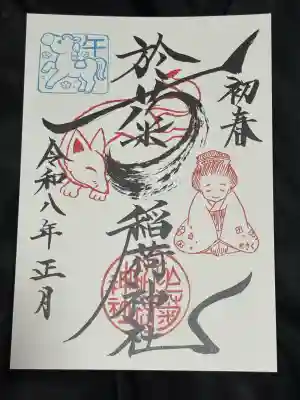 初春
於菊
稲荷神社
令和八年 正月
午